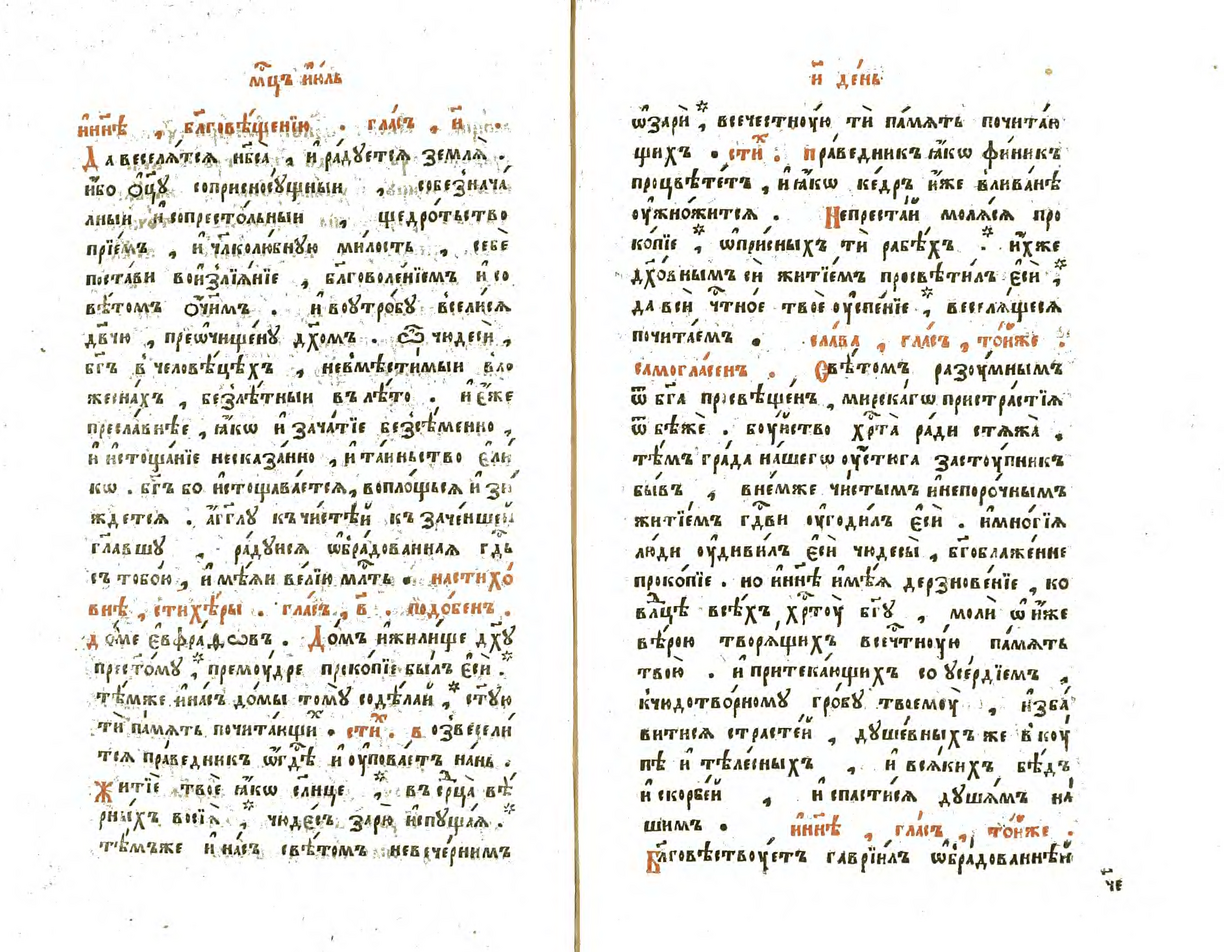 мц҃ъ і҆ю́ль
и҆нн҃ѣ , бл҃говѣ́щенїю . гла́съ , и҃ .
Да веселѧ́тсѧ нб҃са̀ , и҆ ра́дуетсѧ землѧ̀ .
и҆́бо ѻ҆ц҃ꙋ̀ соприсносꙋ́щныи , собезнача́
лныи и҆ сопресто́льныи , щедро́тьство
прїе́мъ , и҆ чл҃колю́бнꙋю ми́лость , себѐ
поста́ви во и҆злїѧ́нїе , бл҃говоле́нїемъ и҆ со
вѣ́томъ ѻ҆́ч҃имъ . и҆ во ᲂутро́бꙋ всели́сѧ
дв҃чю , преѡ҆чище́нꙋ дх҃омъ . Ѽ чюдесѝ ,
бг҃ъ в челове́цѣхъ , невмѣсти́мыи в ло
жесна́хъ , безлѣ́тныи въ лѣ́то . и҆ є҆́же
пресла́внѣе , ꙗ҆́кѡ и҆ зача́тїе безсѣ́менно ,
и҆ и҆стоща́нїе несказа́нно , и҆ та́иньство є҆ли́
кѡ . бг҃ъ бо и҆стощава́етсѧ , воплоща́ьсѧ и҆ зи́
ждетсѧ . а҆́гг҃лꙋ к чи́стѣй къ заче́ншей
гл҃авшꙋ , ра́дꙋисѧ ѡ҆бра́дованнаѧ гд҃ь
съ тобо́ю , и҆мѣ́ѧи ве́лїю мл҃ть . на стихо́
внѣ , стихѣ́ры . гла́съ , в҃ . подо́бенъ .
до́ме є҆вфра́ѳовъ . До́мъ и҆ жили́ще дх҃ꙋ
прест҃о́мꙋ * премоу́дре проко́пїе бы́лъ є҆сѝ . *
тѣ́мже и҆ на́съ до́мы томꙋ̀ содѣ́лай , * ст҃ꙋ́ю
тѝ па́мѧть почита́ющи . сти́х . возвесели́
тсѧ пра́ведникъ ѡ҆ гд҃ѣ и҆ ᲂупова́етъ на́нь .
Житїѐ твоѐ ꙗ҆́кѡ сл҃нце , * въ срдц҃а̀ вѣ́
рныхъ восїѧ̀ , * чюде́съ зарю̀ и҆спꙋща́ѧ . *
тѣ́мъже и҆ на́съ свѣ́томъ невече́рнимъ
и҃ де́нь
ѡ҆зарѝ , * всечестноу́ю тѝ па́мѧть почита́ю
щихъ . сти́х : пра́ведникъ ꙗ҆́кѡ фи́никъ
процвѣте́тъ , и҆ ꙗ҆́кѡ ке́дръ и҆́же в лива́нѣ
ᲂумно́житсѧ . Непреста́й молѧ́сѧ про
ко́пїе , * ѡ҆ при́сныхъ тѝ рабѣ́хъ . * и҆́хже
дх҃о́внымъ сѝ житїе́мъ просвѣти́лъ є҆сѝ , *
да всѝ чт҃ное твоѐ ᲂуспе́нїе , * веселѧ́щесѧ
почита́емъ . сла́ва , гла́съ , то́йже :
самогла́сенъ . Свѣ́томъ разоу́мнымъ
ѿ бг҃а просвѣще́нъ , мирска́гѡ пристра́стїѧ
ѿ бѣ́же . боу́йство хр҃та̀ ра́ди стѧжа̀ ,
тѣ́мъ гра́да на́шегѡ ᲂу́стюга засто́упникъ
бы́въ , в не́мже чи́стымъ и҆ непоро́чнымъ
житїе́мъ гд҃ви ᲂугоди́лъ є҆сѝ . и҆ мно́гїѧ
лю́ди ᲂудиви́лъ є҆сѝ чюдесы̀ , бг҃облаже́нне
проко́пїе . но и҆нн҃ѣ и҆мѣ́ѧ дерзнове́нїе , ко
влд҃цѣ всѣ́хъ , хр҃тоу̀ бг҃ꙋ , молѝ ѡ҆ и҆́же
вѣ́рою творѧ́щихъ всечт҃ноу́ю па́мѧть
твою̀ . и҆ притека́ющихъ со ᲂусе́рдїемъ ,
к чюдотво́рномꙋ гро́бꙋ твоемоу̀ , и҆зба́
витисѧ страсте́й , дꙋше́вныхъ же в коу́
пѣ и҆ тѣле́сныхъ , и҆ всѧ́кихъ бѣ́дъ
и҆ скорбе́й , и҆ спасти́сѧ дꙋша́мъ на́
шимъ . и҆нн҃ѣ , гла́съ , то́йже .
Бл҃говѣ́ствоуетъ гаврїи́лъ ѡ҆бра́дованнѣй
че